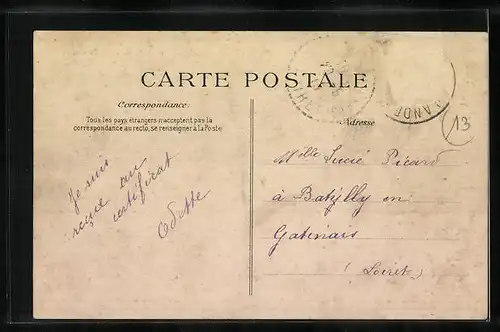 CARTE POSTALE
Correspondance
Tous les pays étrangers n'acceptent pas la
correspondance au recto, se renseigner à la Poste
Adresse
13
Je suis
reçue au
certificat
Odette
Melle Lucie Picard
à Batilly en
Gatinais
(Loiret)